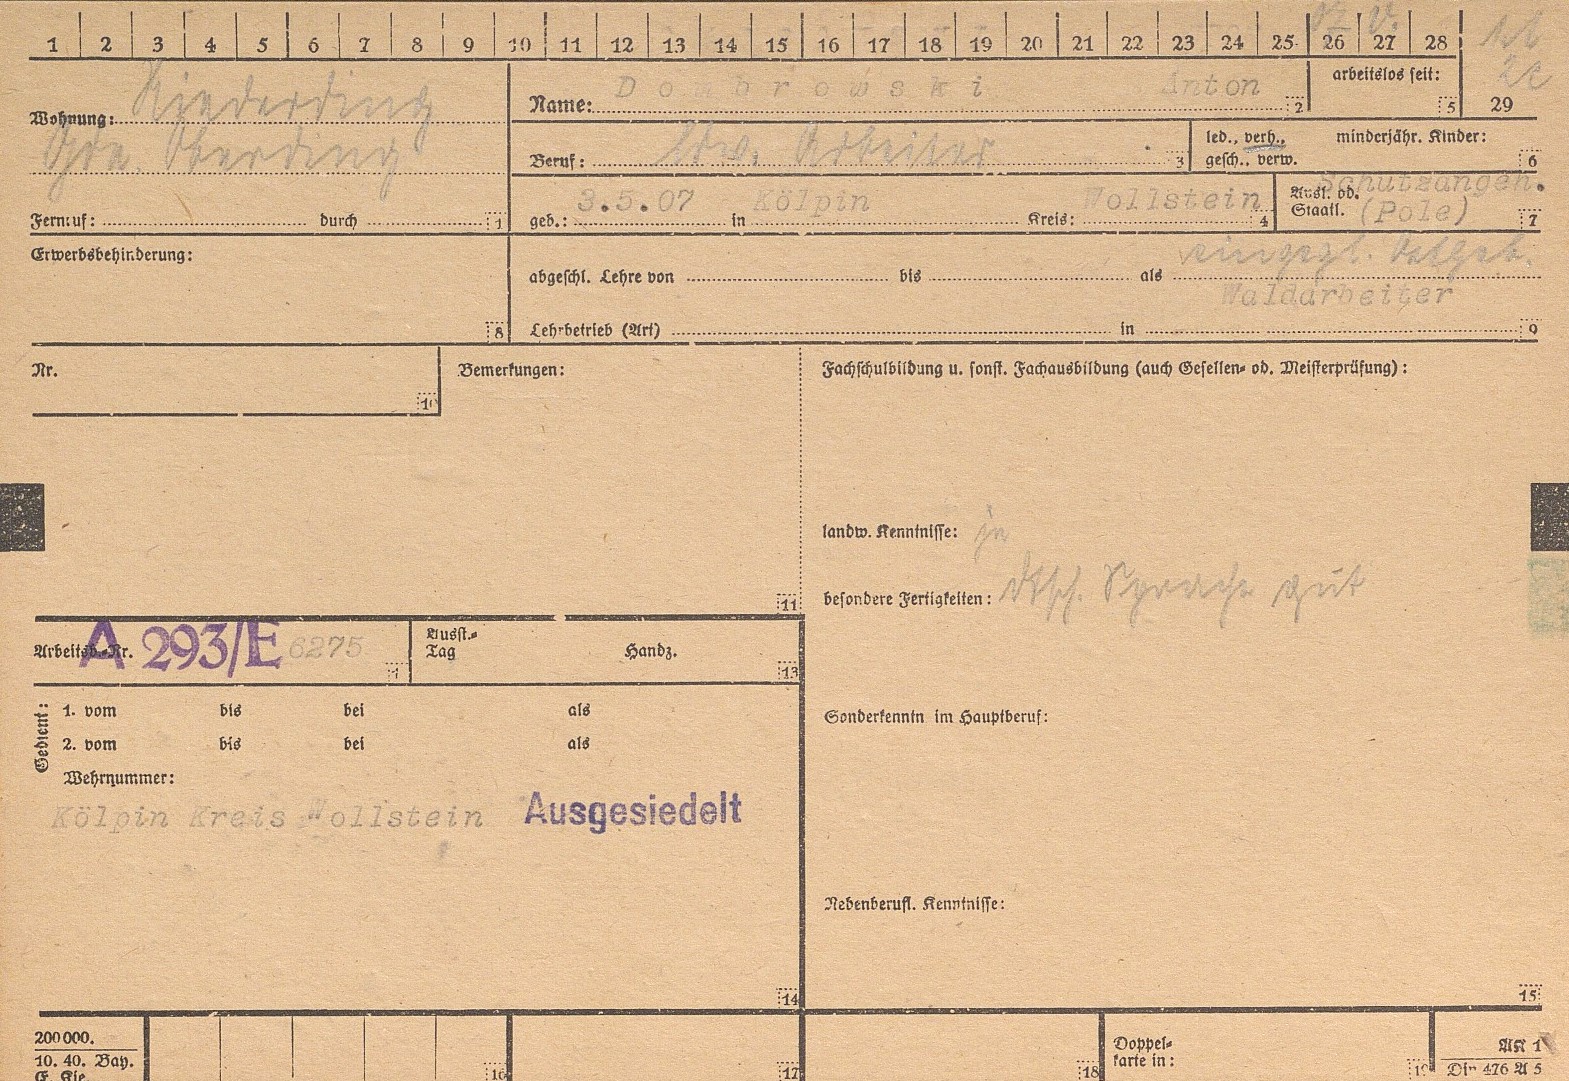 1 2 3 4 5 6 7 8 9 10 11 12 13 14 15 16 17 18 19 20 21 22 23 24 25 26 27 28
29
Wohnung: Niederding
Gde. Oberding
Fernruf: durch 1
Name: Dombrowski Anton 2
arbeitslos seit: 5
Beruf: ldw. Arbeiter 3
led., verh., minderjähr. Kinder:
gesch., verw. 6
geb.: 3.5.07 in Kölpin Kreis: Wollstein 4
Ausl. od. Schutzangeh.
Staatl. (Pole) 7
Erwerbsbehinderung:
8
eingegl. Ostgeb.
abgeschl. Lehre von bis als
Waldarbeiter
Lehrbetrieb (Art) in 9
Nr.
10
Bemerkungen:
11
Fachschulbildung u. sonst. Fachausbildung (auch Gesellen- od. Meisterprüfung):
landw. Kenntnisse: ja
besondere Fertigkeiten: dtsch. Sprache gut
Arbeitsb.-Nr. A 293/E 6275
Ausst.-
Tag Handz. 13
Sonderkenntn im Hauptberuf:
Gedient:
1. vom bis bei als
2. vom bis bei als
Wehrnummer:
Kölpin Kreis Wollstein Ausgesiedelt
14
Nebenberufl. Kenntnisse:
15
200000.
10. 40. Bay.
16 17 18
Doppel-
karte in:
19
AK 1
Din 476 A 5